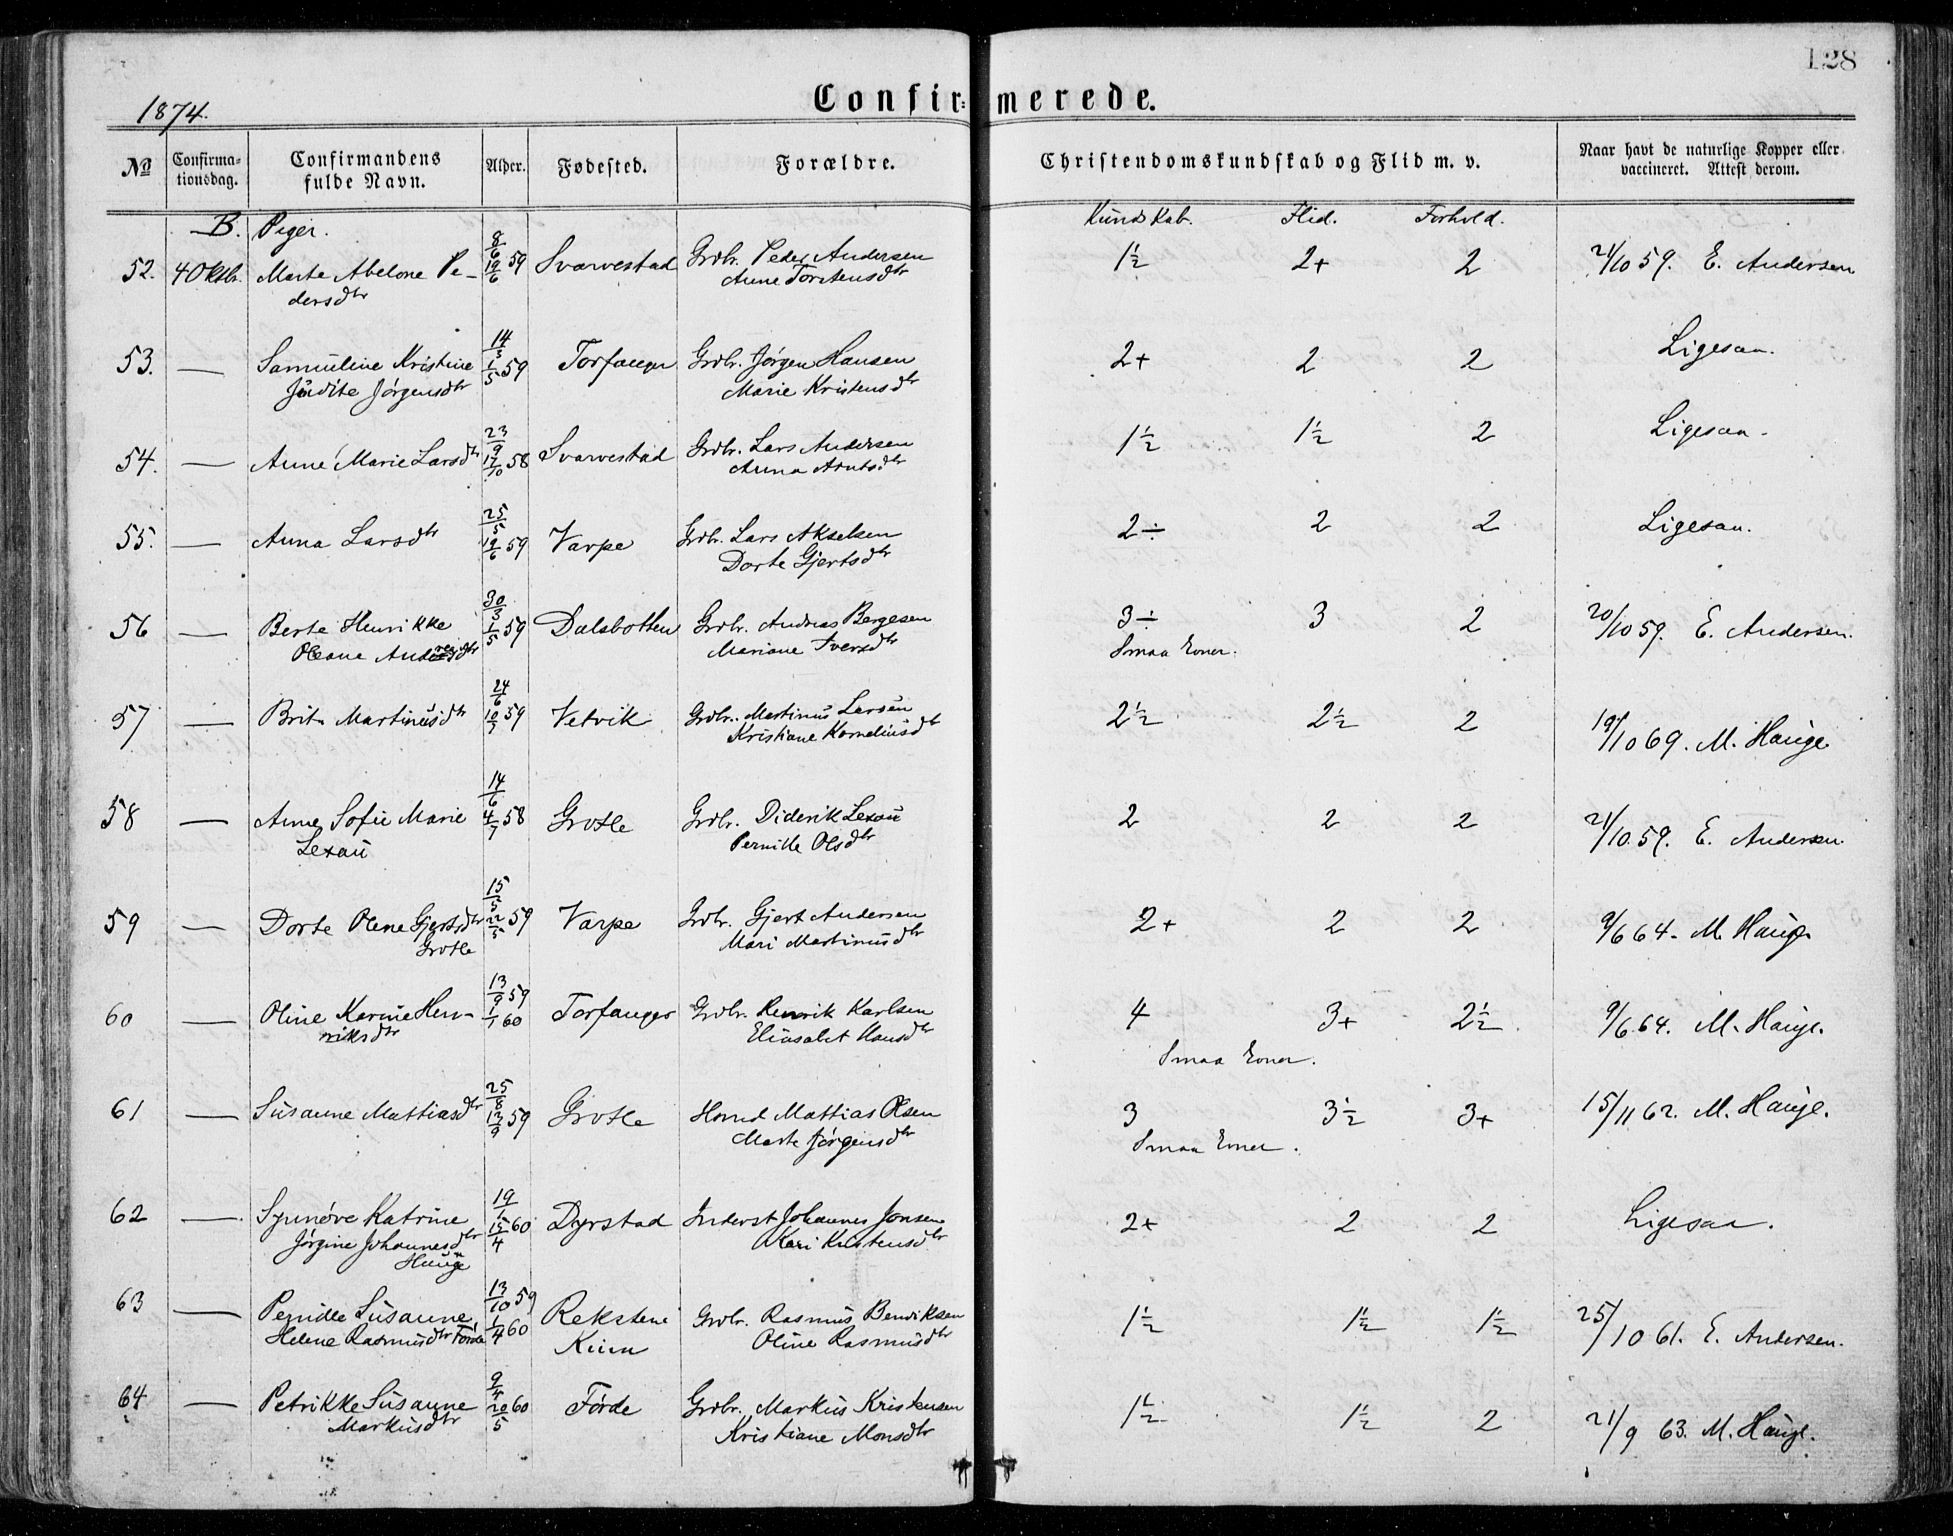 128
1874.
Confirmerede.
No
Confirma-
tionsdag.
Confirmandens
fulde Navn.
Alder.
Fødested.
Forældre.
Christendomskundskab og Flid m. v.
Naar havt de naturlige Kopper eller
vaccineret. Attest derom.
B. Piger.
Kundskab. Flid. Forhold.
52. 4 Oktbr. Marte Abelone Pe- 8/6 19/6 59 Svarvestad Grdbr. Peder Andersen 1½ 2+ 2 21/10 59. E. Andersen
dersdtr Anne Torstensdtr
53. — Samuline Kristine 14/3 1/5 59 Torfanger Grdbr. Jørgen Hansen 2+ 2 2 Ligesaa.
Judite Jørgensdtr Marie Kristensdtr
54. — Anne Marie Larsdtr 23/9 17/10 58 Svarvestad Grdbr. Lars Andersen 1½ 1½ 2 Ligesaa.
Anna Arntsdtr
55. — Anna Larsdtr 25/5 19/6 59 Varpe Grdbr. Lars Akselsen 2÷ 2 2 Ligesaa.
Dorte Gjertsdtr
56 — Berte Henrikke 30/3 1/5 59 Dalsbotten Grdbr. Andreas Bergesen 3÷ 3 2 20/10 59. E. Andersen.
Oleane Andreasdtr Mariane Iversdtr Smaa Evner.
57 — Brit Martinusdtr 24/6 10/7 59 Vetvik Grdbr. Martinus Larsen 2½ 2½ 2 19/10 69. M. Hauge
Kristiane Korneliusdtr
58 — Anne Sofie Marie 14/6 4/7 58 Grotle Grdbr. Diderik Lexau 2 2 2 21/10 59. E. Andersen.
Lexau Pernille Olsdtr
59 — Dorte Olene Gjertsdtr 15/5 22/5 59 Varpe Grdbr. Gjert Andersen 2+ 2 2 9/6 64. M. Hauge
Grotle Mari Martinusdtr
60 — Oline Karine Hen- 13/9 59 1/1 60 Torfanger Grdbr. Henrik Karlsen 4 3+ 2½ 9/6 64. M. Hauge.
riksdtr Eliasabet Hansdtr Smaa Evner.
61 — Susanne Mattiasdtr 25/8 13/9 59 Grotle Hmd Mattias Olsen 3 3½ 3+ 15/11 62. M. Hauge.
Marte Jørgensdtr Smaa Evner.
62 — Synnøve Katrine 19/1 15/4 60 Dyrstad Inderst Johannes Jonsen 2+ 2 2 Ligesaa.
Jørgine Johannesdtr Kari Kristensdtr
Hauge
63 — Pernille Susanne 13/10 59 1/4 60 Rekstene Grdbr. Rasmus Bendiksen 1½ 1½ 1½ 25/10 61. E. Andersen.
Helene Rasmusdtr Førde Kinn Oline Rasmusdtr
64 — Petrikke Susanne 9/4 20/5 60 Førde Grdbr. Markus Kristensen 1½ 1½ 2 21/9 63. M. Hauge.
Markusdtr Kristiane Monsdtr